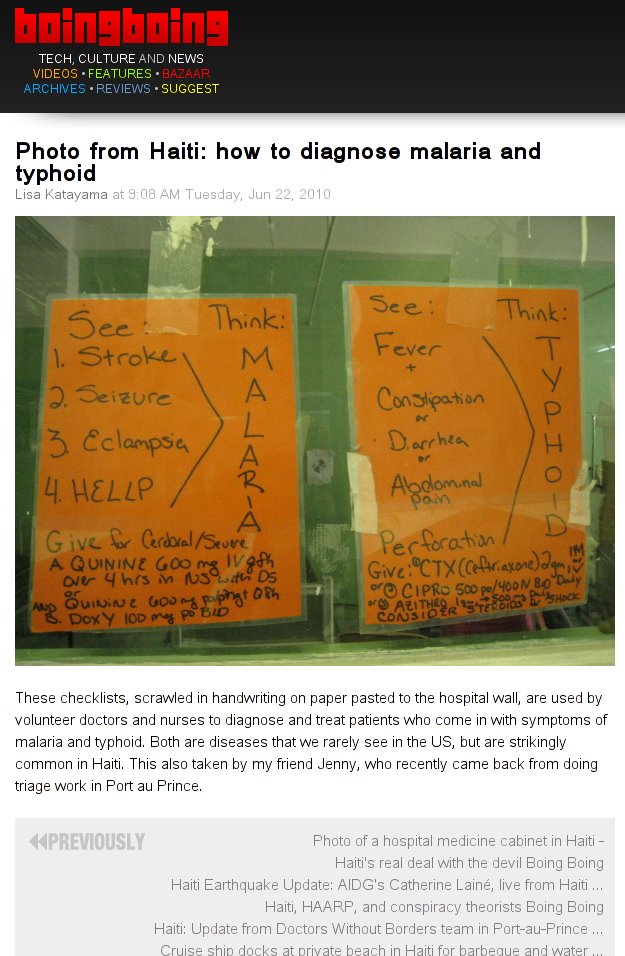 boingboing
TECH, CULTURE AND NEWS
VIDEOS • FEATURES • BAZAAR
ARCHIVES • REVIEWS • SUGGEST
Photo from Haiti: how to diagnose malaria and
typhoid
Lisa Katayama at 9:08 AM Tuesday, Jun 22, 2010
See: Think:
1. Stroke
2. Seizure
3. Eclampsia
4. HELLP
MALARIA
Give for Cerebral/Severe
A. QUININE 600 mg IV q8h
over 4 hrs in NS with D5
or
AND QUININE 600 mg po/pngt Q8h
B. DOXY 100 mg po BID
See: Think:
Fever
+
Constipation
or
Diarrhea
or
Abdominal
pain
Perforation
TYPHOID
Give: ① CTX (Ceftriaxone) 2gm IM IV Daily
or ② CIPRO 500 po/400 IV BID
or ③ AZITHRO 1gm → 500 mg Daily
CONSIDER STEROIDS for SHOCK
These checklists, scrawled in handwriting on paper pasted to the hospital wall, are used by
volunteer doctors and nurses to diagnose and treat patients who come in with symptoms of
malaria and typhoid. Both are diseases that we rarely see in the US, but are strikingly
common in Haiti. This also taken by my friend Jenny, who recently came back from doing
triage work in Port au Prince.
PREVIOUSLY
Photo of a hospital medicine cabinet in Haiti -
Haiti's real deal with the devil Boing Boing
Haiti Earthquake Update: AIDG's Catherine Lainé, live from Haiti ...
Haiti, HAARP, and conspiracy theorists Boing Boing
Haiti: Update from Doctors Without Borders team in Port-au-Prince ...
Cruise ship docks at private beach in Haiti for barbeque and water ...